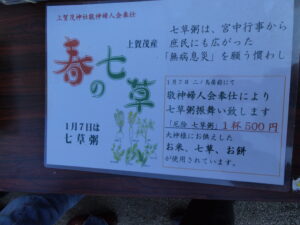 上賀茂神社敬神婦人会奉仕
上賀茂産
春の七草
1月7日は
七草粥
七草粥は、宮中行事から
庶民にも広がった
「無病息災」を願う慣わし
1月7日 二ノ鳥居前にて
敬神婦人会奉仕により
七草粥振舞い致します
「厄除 七草粥」1杯500円
大神様にお供えした
お米、七草、お餅
が使用されています。